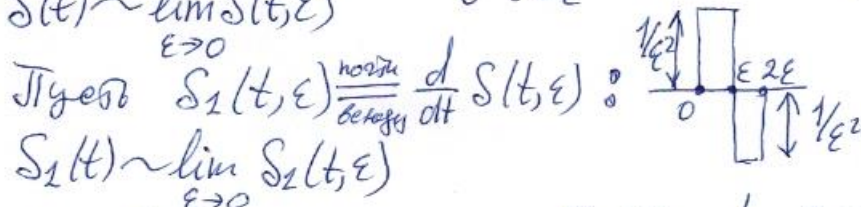 δ(t) ~ lim δ(t,ε)
ε→0
Пусть δ₁(t,ε) почти всюду = d/dt δ(t,ε) :
1/ε² 0 ε 2ε 1/ε²
δ₁(t) ~ lim δ₁(t,ε)
ε→0